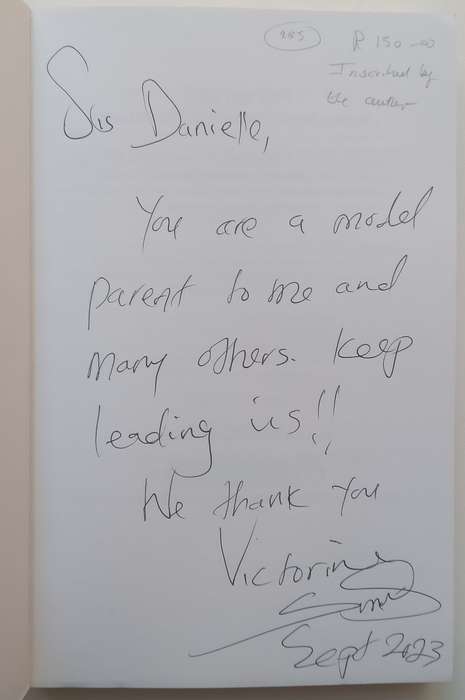 285
R 150-00
Inscribed by
the author
Sus Danielle,
You are a model
parent to me and
many others. Keep
leading us!!
We thank you
Victorine
Sept 2023